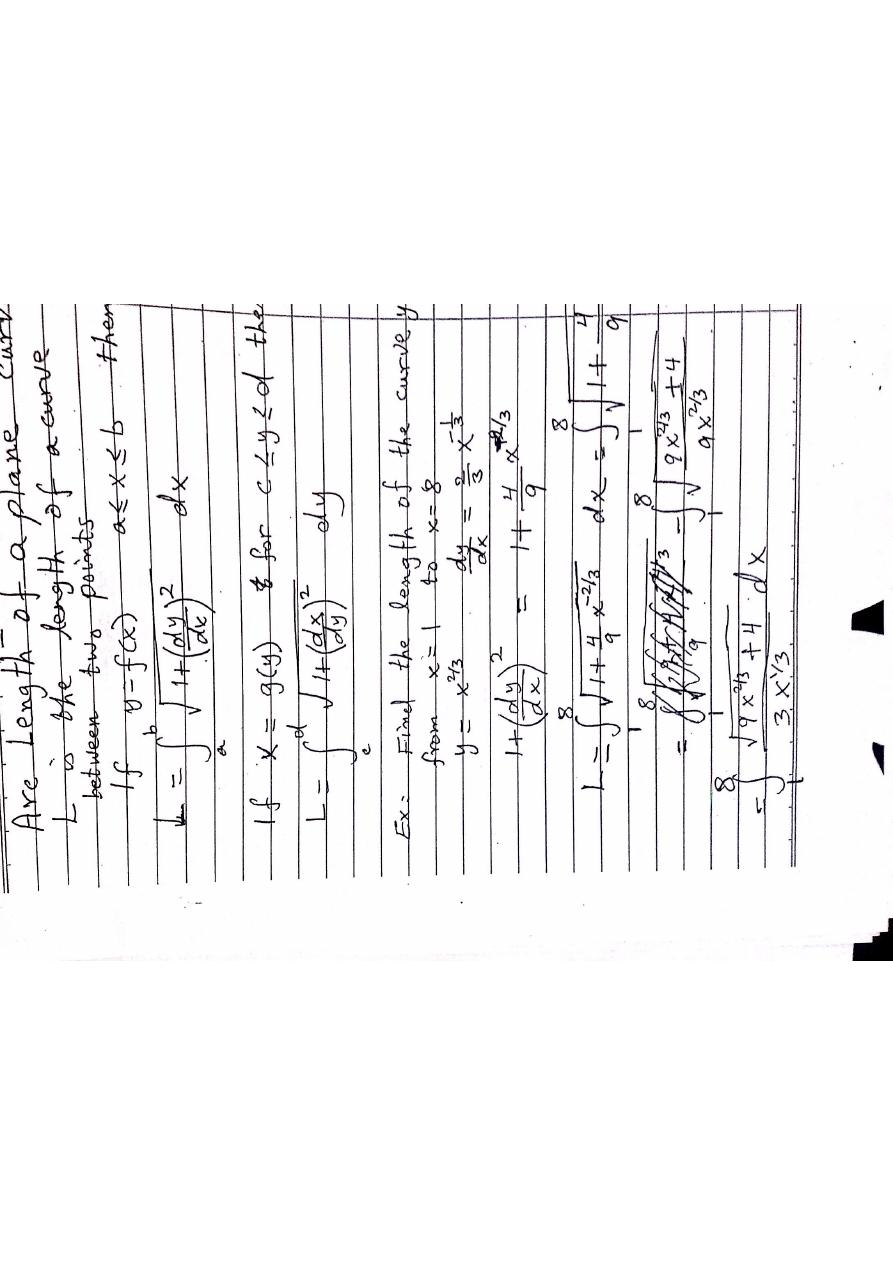 Arc Length of a plane curv
L is the length of a curve
between two points
If y=f(x) a≤x≤b then
L = ∫_a^b √(1+(dy/dx)²) dx
If x = g(y) & for c≤y≤d the
L = ∫_c^d √(1+(dx/dy)²) dy
Ex: Find the length of the curve y
from x=1 to x=8
y = x^{2/3} dy/dx = 2/3 x^{-1/3}
1+(dy/dx)² = 1+ 4/9 x^{-2/3}
L = ∫_1^8 √(1+4/9 x^{-2/3}) dx = ∫_1^8 √(1+ 4/9
= ∫_1^8 = ∫_1^8 √((9x^{2/3}+4)/(9x^{2/3}))
= ∫_1^8 √(9x^{2/3}+4)/(3x^{1/3}) dx